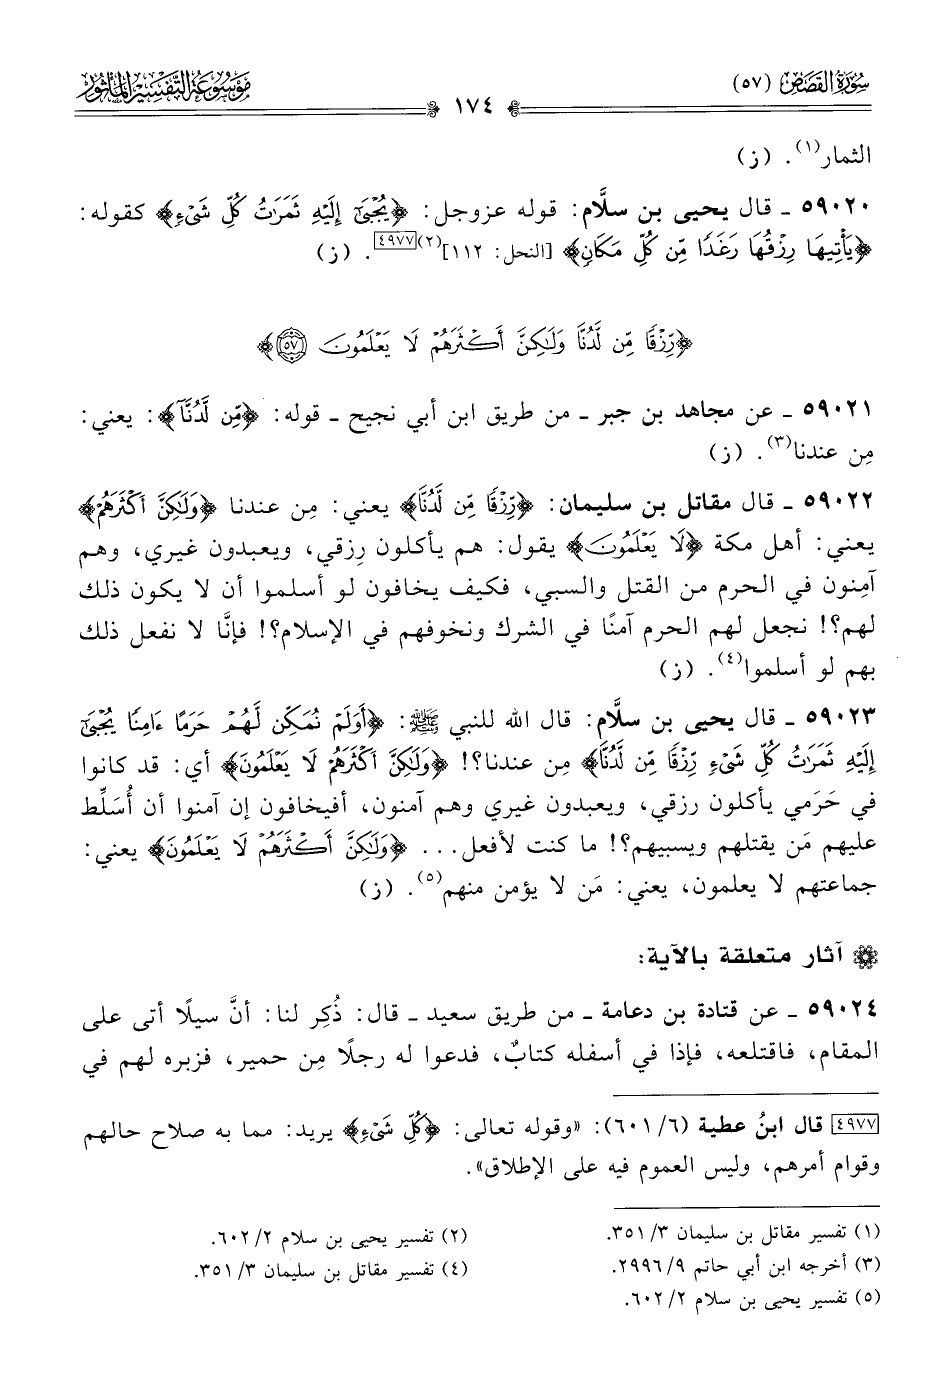 سورة القصص (٥٧)
١٧٤
موسوعة التفسير المأثور
الثمار(١). (ز)
٥٩٠٢٠ ـ قال يحيى بن سلَّام: قوله عزوجل: ﴿يُجْبَىٰٓ إِلَيْهِ ثَمَرَٰتُ كُلِّ شَىْءٍ﴾ كقوله:
﴿يَأْتِيهَا رِزْقُهَا رَغَدًا مِّن كُلِّ مَكَانٍ﴾ [النحل: ١١٢](٢)[٤٩٧٧]. (ز)
﴿رِّزْقًا مِّن لَّدُنَّا وَلَٰكِنَّ أَكْثَرَهُمْ لَا يَعْلَمُونَ ٥٧﴾
٥٩٠٢١ ـ عن مجاهد بن جبر ـ من طريق ابن أبي نجيح ـ قوله: ﴿مِّن لَّدُنَّا﴾: يعني:
مِن عندنا(٣). (ز)
٥٩٠٢٢ ـ قال مقاتل بن سليمان: ﴿رِّزْقًا مِّن لَّدُنَّا﴾ يعني: مِن عندنا ﴿وَلَٰكِنَّ أَكْثَرَهُمْ﴾
يعني: أهل مكة ﴿لَا يَعْلَمُونَ﴾ يقول: هم يأكلون رِزقي، ويعبدون غيري، وهم
آمِنون في الحرم من القتل والسبي، فكيف يخافون لو أسلموا أن لا يكون ذلك
لهم؟! نجعل لهم الحرم آمنًا في الشرك ونخوفهم في الإسلام؟! فإنَّا لا نفعل ذلك
بهم لو أسلموا(٤). (ز)
٥٩٠٢٣ ـ قال يحيى بن سلَّام: قال الله للنبي ﷺ: ﴿أَوَلَمْ نُمَكِّن لَّهُمْ حَرَمًا ءَامِنًا يُجْبَىٰٓ
إِلَيْهِ ثَمَرَٰتُ كُلِّ شَىْءٍ رِّزْقًا مِّن لَّدُنَّا﴾ مِن عندنا؟! ﴿وَلَٰكِنَّ أَكْثَرَهُمْ لَا يَعْلَمُونَ﴾ أي: قد كانوا
في حَرَمي يأكلون رزقي، ويعبدون غيري وهم آمنون، أفيخافون إن آمنوا أن أُسَلِّط
عليهم مَن يقتلهم ويسبيهم؟! ما كنت لأفعل... ﴿وَلَٰكِنَّ أَكْثَرَهُمْ لَا يَعْلَمُونَ﴾ يعني:
جماعتهم لا يعلمون، يعني: مَن لا يؤمن منهم(٥). (ز)
آثار متعلقة بالآية:
٥٩٠٢٤ ـ عن قتادة بن دعامة ـ من طريق سعيد ـ قال: ذُكِر لنا: أنَّ سيلًا أتى على
المقام، فاقتلعه، فإذا في أسفله كتابٌ، فدعوا له رجلًا مِن حمير، فزبره لهم في
[٤٩٧٧] قال ابنُ عطية (٦/ ٦٠١): «وقوله تعالى: ﴿كُلِّ شَىْءٍ﴾ يريد: مما به صلاح حالهم
وقوام أمرهم، وليس العموم فيه على الإطلاق».
(١) تفسير مقاتل بن سليمان ٣/ ٣٥١.
(٢) تفسير يحيى بن سلام ٢/ ٦٠٢.
(٣) أخرجه ابن أبي حاتم ٩/ ٢٩٩٦.
(٤) تفسير مقاتل بن سليمان ٣/ ٣٥١.
(٥) تفسير يحيى بن سلام ٢/ ٦٠٢.